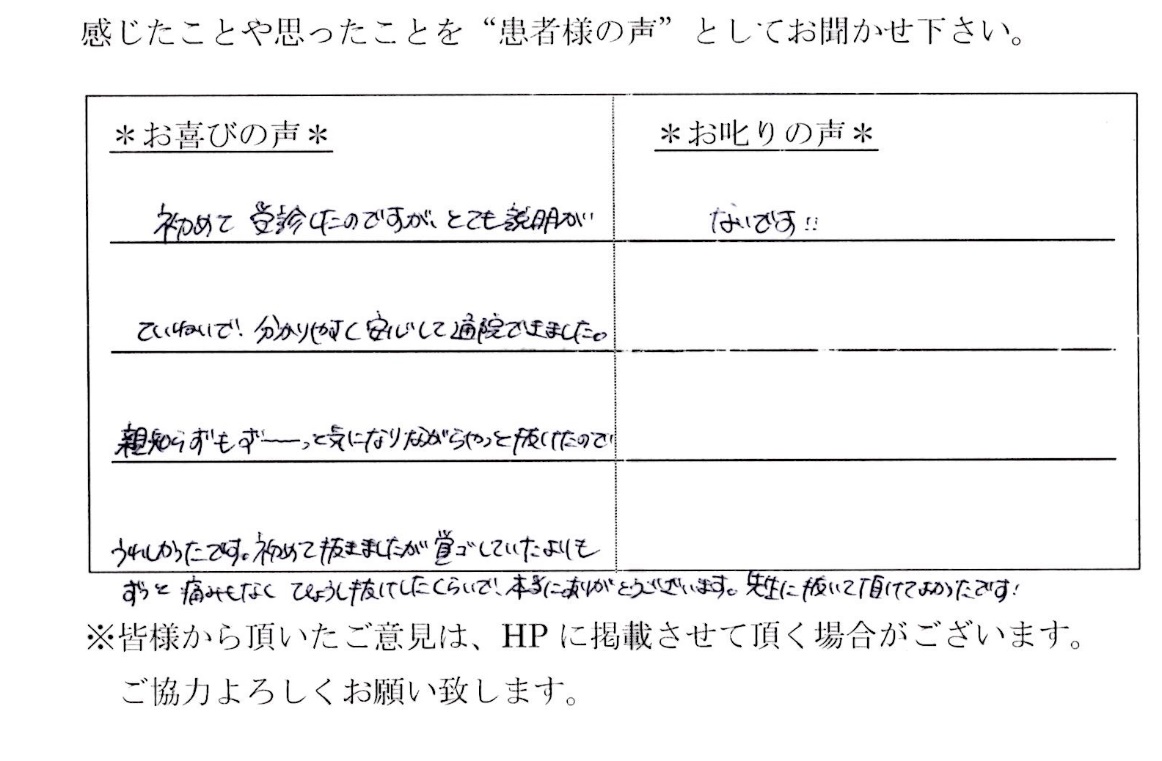 感じたことや思ったことを“患者様の声”としてお聞かせ下さい。
＊お喜びの声＊
初めて受診したのですが、とても説明が
ていねいで！分かりやすく安心して通院できました。
親知らずもずーーっと気になりながらやっと抜けたので
うれしかったです。初めて抜きましたが覚ゴしていたよりも
ずっと痛みもなくひょうし抜けしたくらいで、本当にありがとうございます。先生に抜いて頂けてよかったです！
＊お叱りの声＊
ないです!!
※皆様から頂いたご意見は、HPに掲載させて頂く場合がございます。
ご協力よろしくお願い致します。